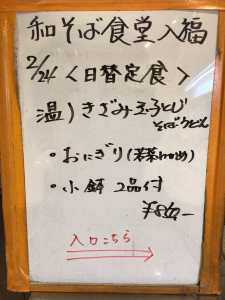 和そば食堂 入福
2/24 〈日替定食〉
温) きざみ玉子とじ
そば・うどん
・おにぎり(若菜
・小鉢 2品付
入口こちら